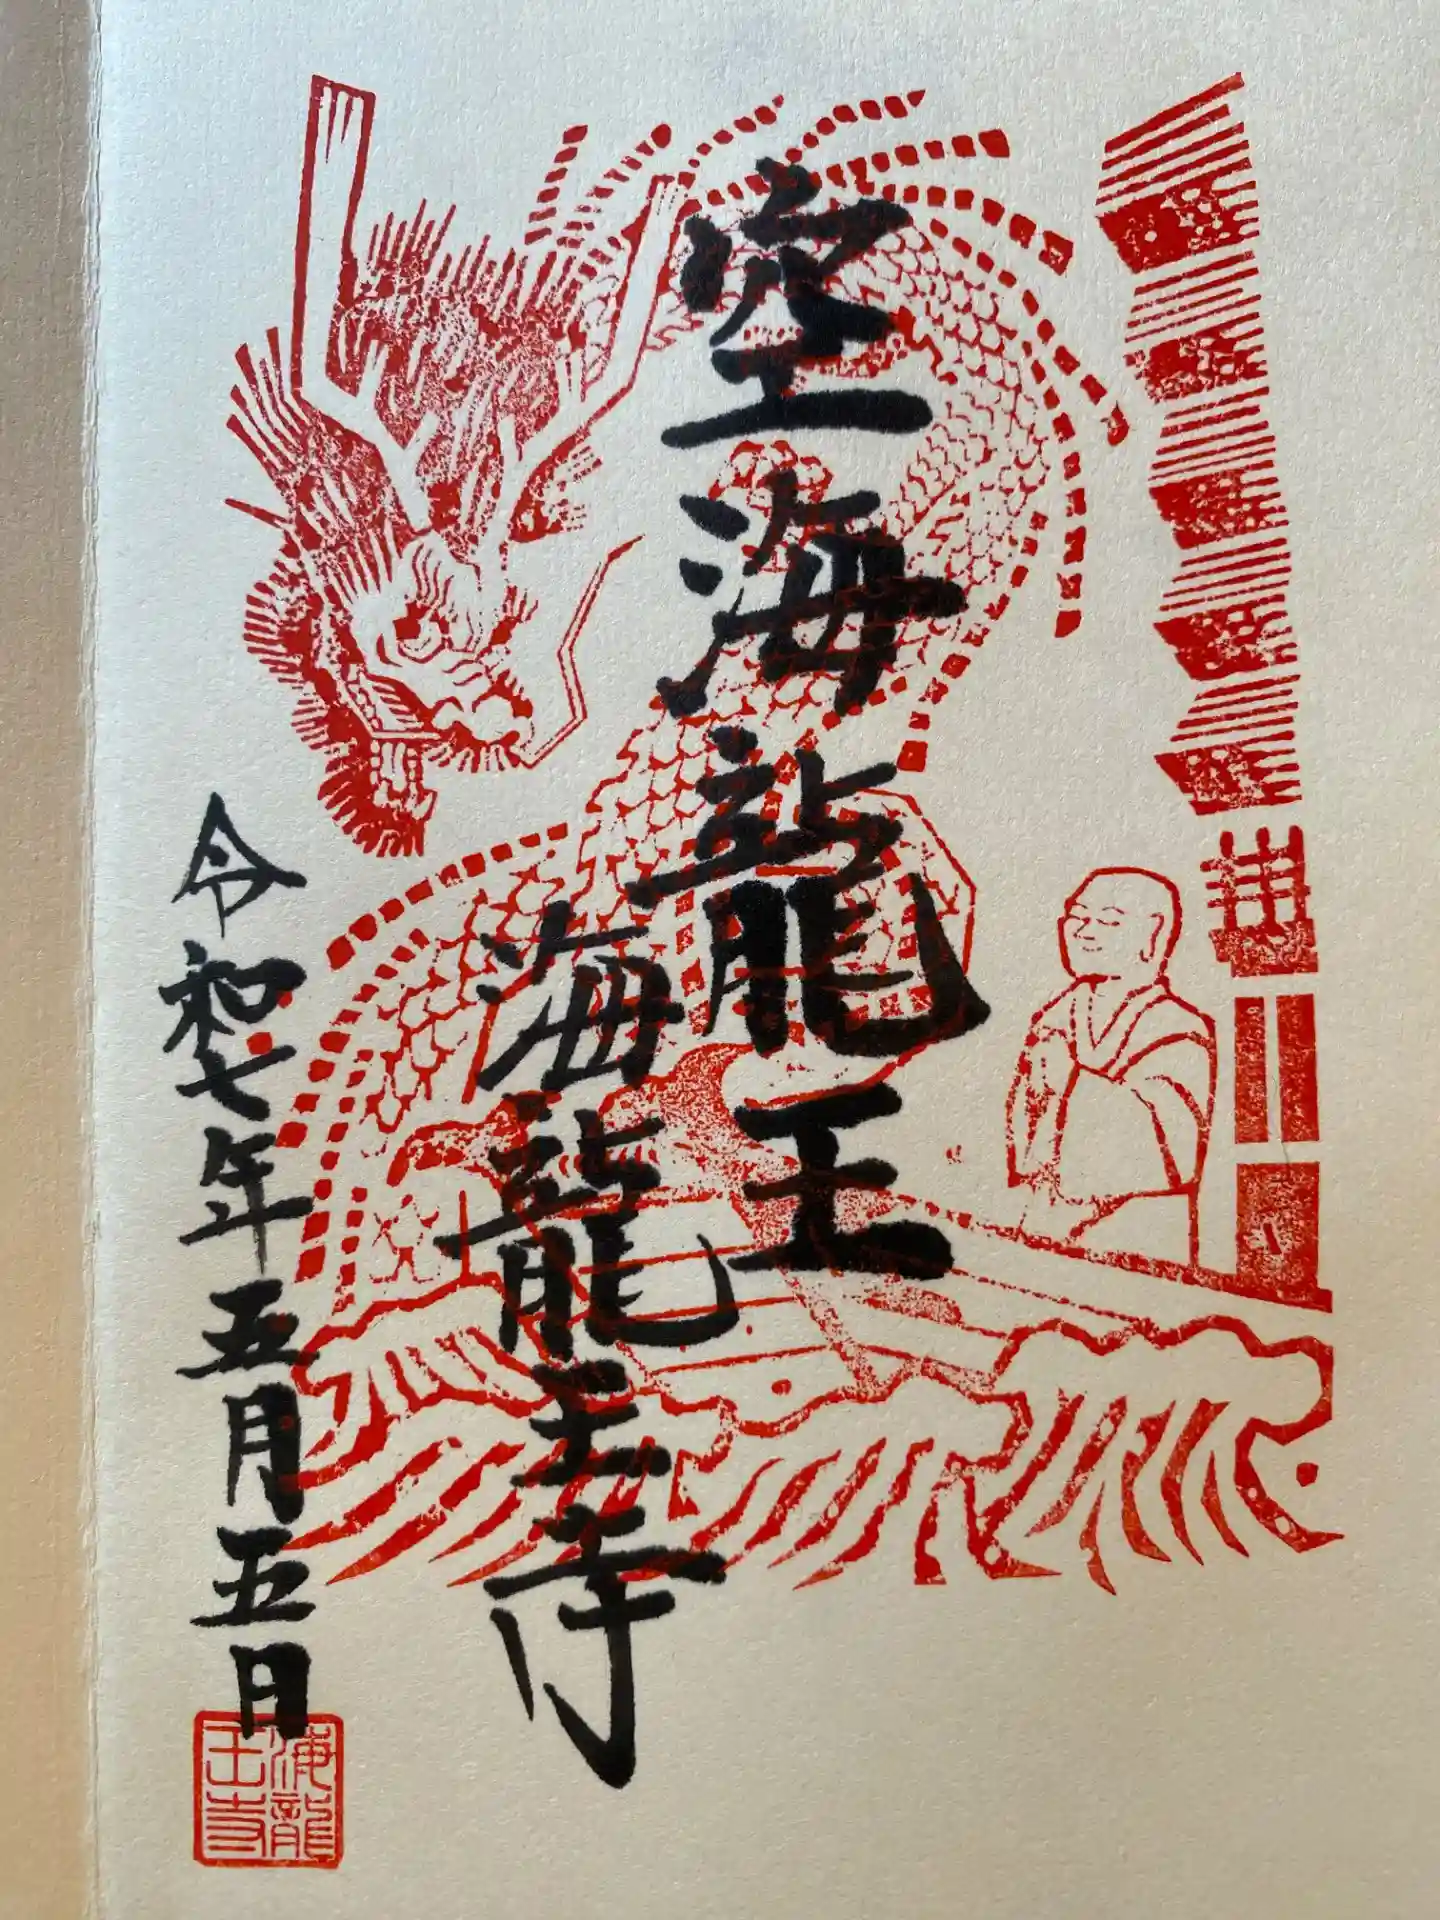 空海龍王
海龍王寺
令和七年五月五日
海龍
王寺